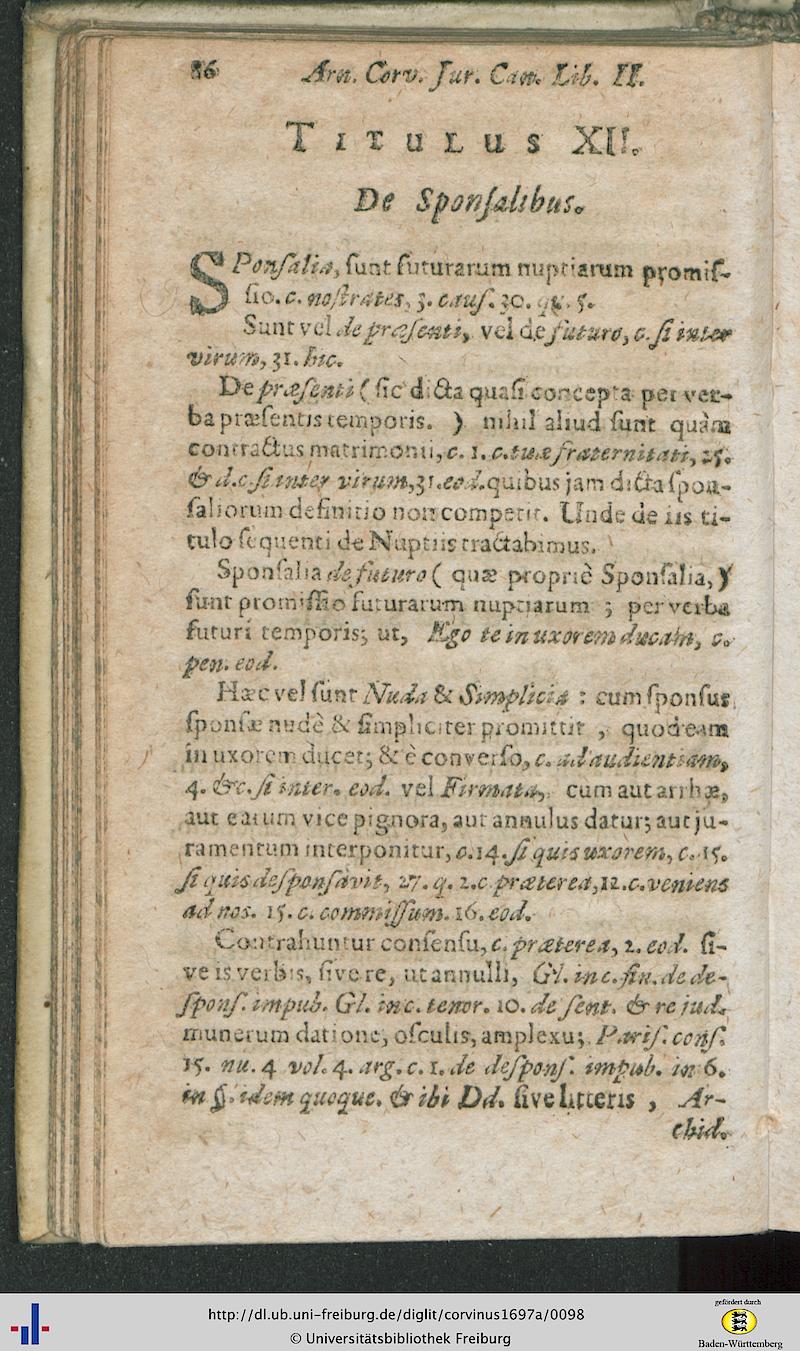 86 Arn. Corv. Jur. Can. Lib. II.
TITULUS XII.
De Sponſalibus.
SPonſalia, ſunt futurarum nuptiarum promiſ-
ſio. c. noſtrates, 3. cauſ. 30. qu. 5.
Sunt vel de præſenti, vel de futuro, c. ſi inter
virum, 31. hic.
De præſenti ( ſic dicta quaſi concepta per ver-
ba præſentis temporis. ) nihil aliud ſunt quàm
contractus matrimonii, c. 1. c. tuæ fraternitati, 25.
& d. c. ſi inter virum, 31. eod. quibus jam dicta ſpon-
ſaliorum definitio non competit. Unde de iis ti-
tulo ſequenti de Nuptiis tractabimus.
Sponſalia de futuro ( quæ propriè Sponſalia, )
ſunt promiſſio futurarum nuptiarum ; per verba
futuri temporis; ut, Ego te in uxorem ducam, c.
pen. eod.
Hæc vel ſunt Nuda & Simplicia : cum ſponſus
ſponſæ nudè & ſimpliciter promittit , quod eam
in uxorem ducet; & è converſo, c. ad audientiam,
4. & c. ſi inter. eod. vel Firmata, cum aut arrhæ,
aut earum vice pignora, aut annulus datur; aut ju-
ramentum interponitur, c. 14. ſi quis uxorem, c. 15.
ſi quis deſponſavit, 27. q. 2. c. præterea, 12. c. veniens
ad nos. 15. c. commiſſum. 16. eod.
Contrahuntur conſenſu, c. præterea, 2. eod. ſi-
ve is verbis, ſive re, ut annulli, Gl. in c. fin. de de-
ſponſ. impub. Gl. in c. tenor. 10. de ſent. & re jud.
munerum datione, oſculis, amplexu; Pariſ. conſ.
15. nu. 4 vol. 4. arg. c. 1. de deſponſ. impub. in 6.
in §. idem quoque. & ibi Dd. ſive litteris , Ar-
chid.
http://dl.ub.uni-freiburg.de/diglit/corvinus1697a/0098
© Universitätsbibliothek Freiburg
gefördert durch
Baden-Württemberg